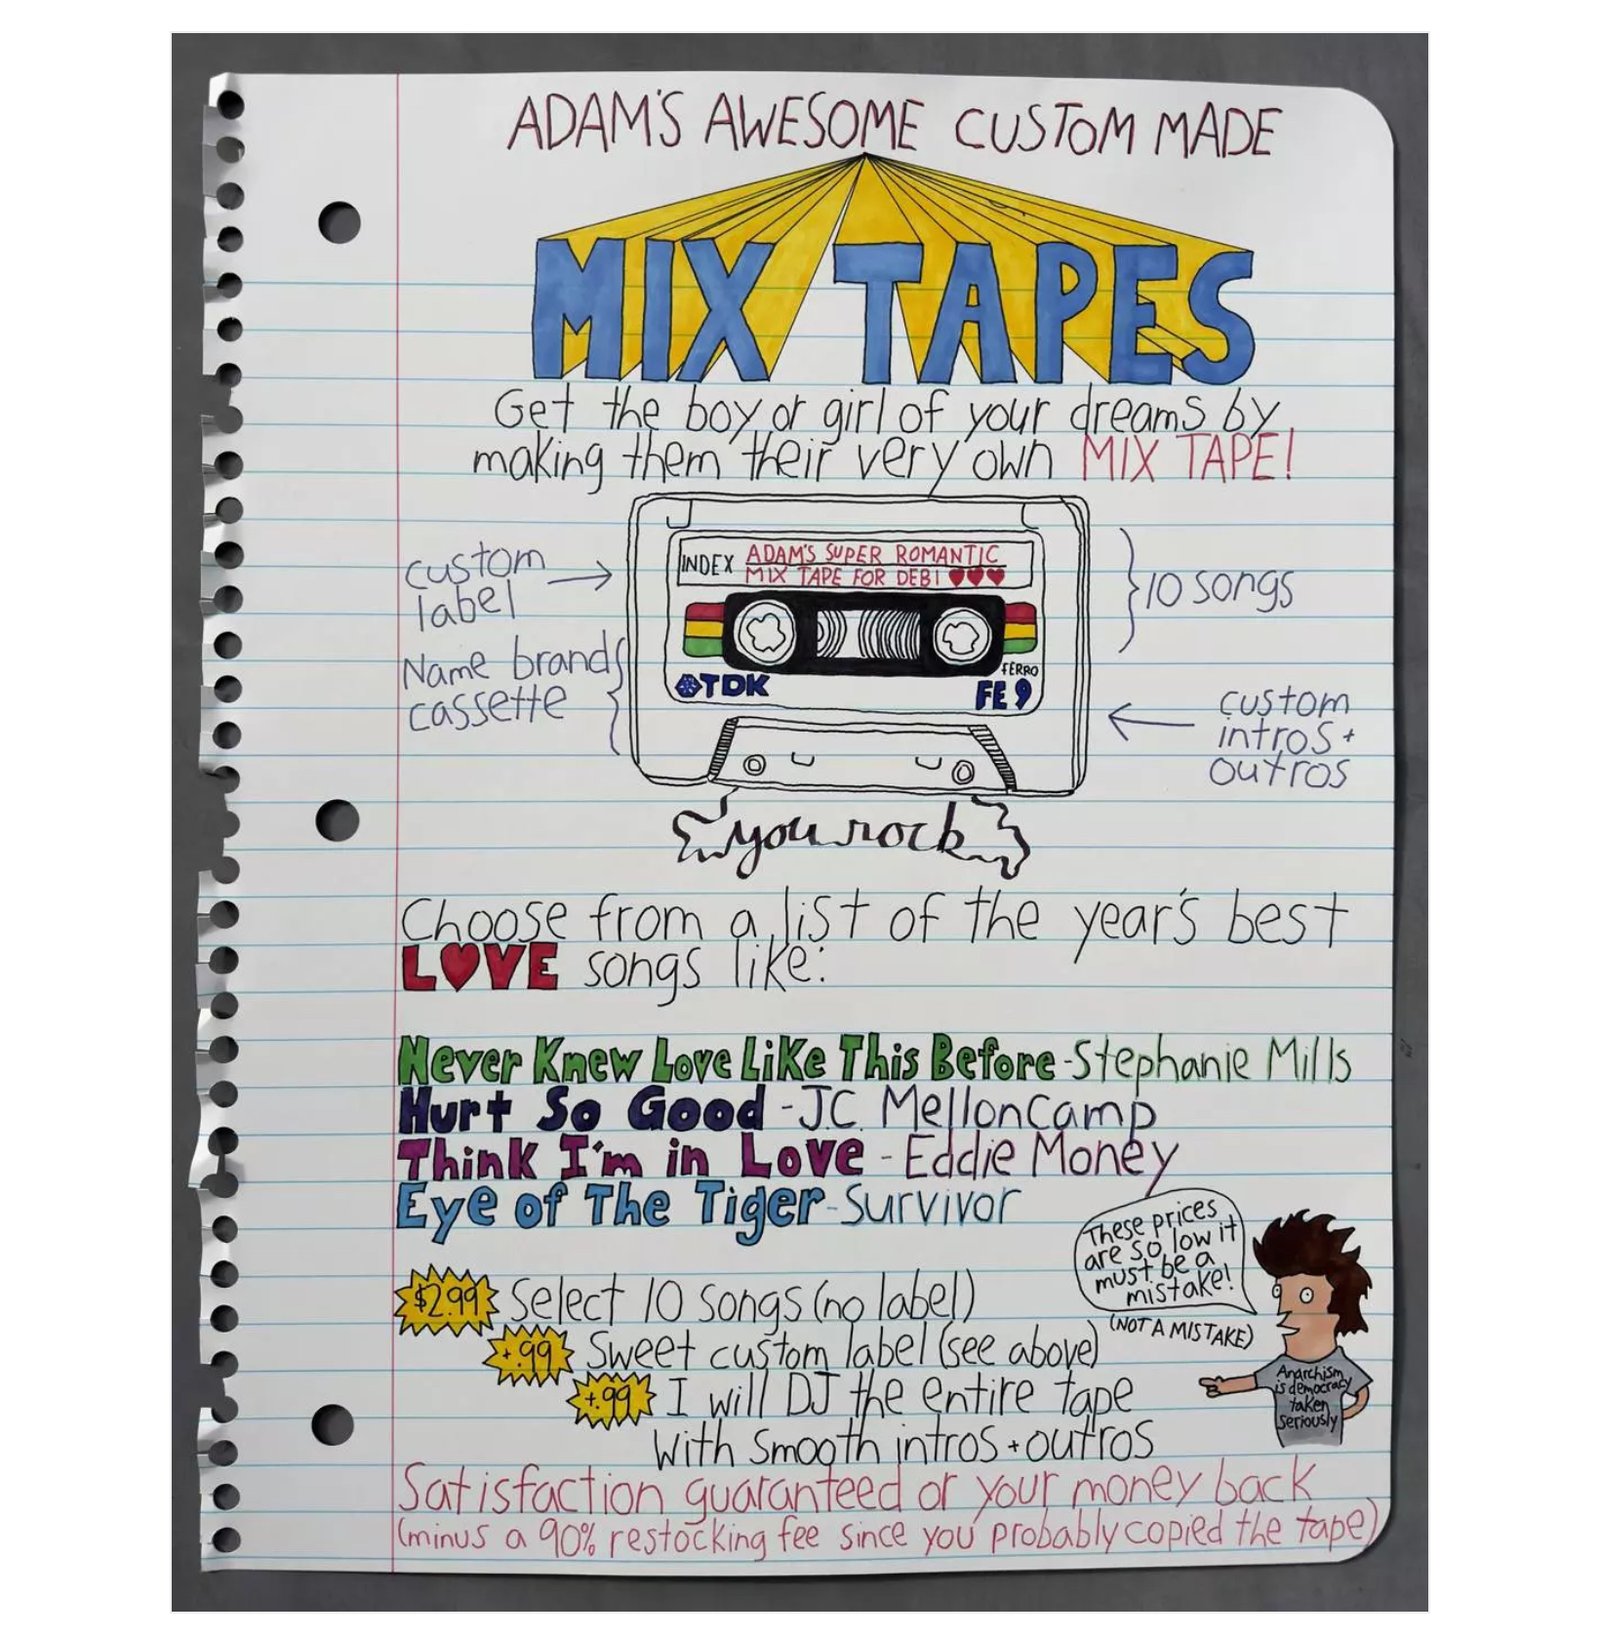 ADAM'S AWESOME CUSTOM MADE
MIX TAPES
Get the boy or girl of your dreams by
making them their very own MIX TAPE!
custom
label
Name brand
cassette
INDEX ADAM'S SUPER ROMANTIC
MIX TAPE FOR DEBI ♥♥♥
TDK
FERRO
FE 9
10 songs
custom
intros +
outros
you rock
Choose from a list of the year's best
L♥VE songs like:
Never Knew Love Like This Before - Stephanie Mills
Hurt So Good - J.C. Melloncamp
Think I'm in Love - Eddie Money
Eye of The Tiger - Survivor
These prices
are so low it
must be a
mistake!
(NOT A MISTAKE)
Anarchism
is democracy
taken
seriously
$2.99 Select 10 songs (no label)
+.99 Sweet custom label (see above)
+.99 I will DJ the entire tape
with smooth intros + outros
Satisfaction guaranteed or your money back
(minus a 90% restocking fee since you probably copied the tape)